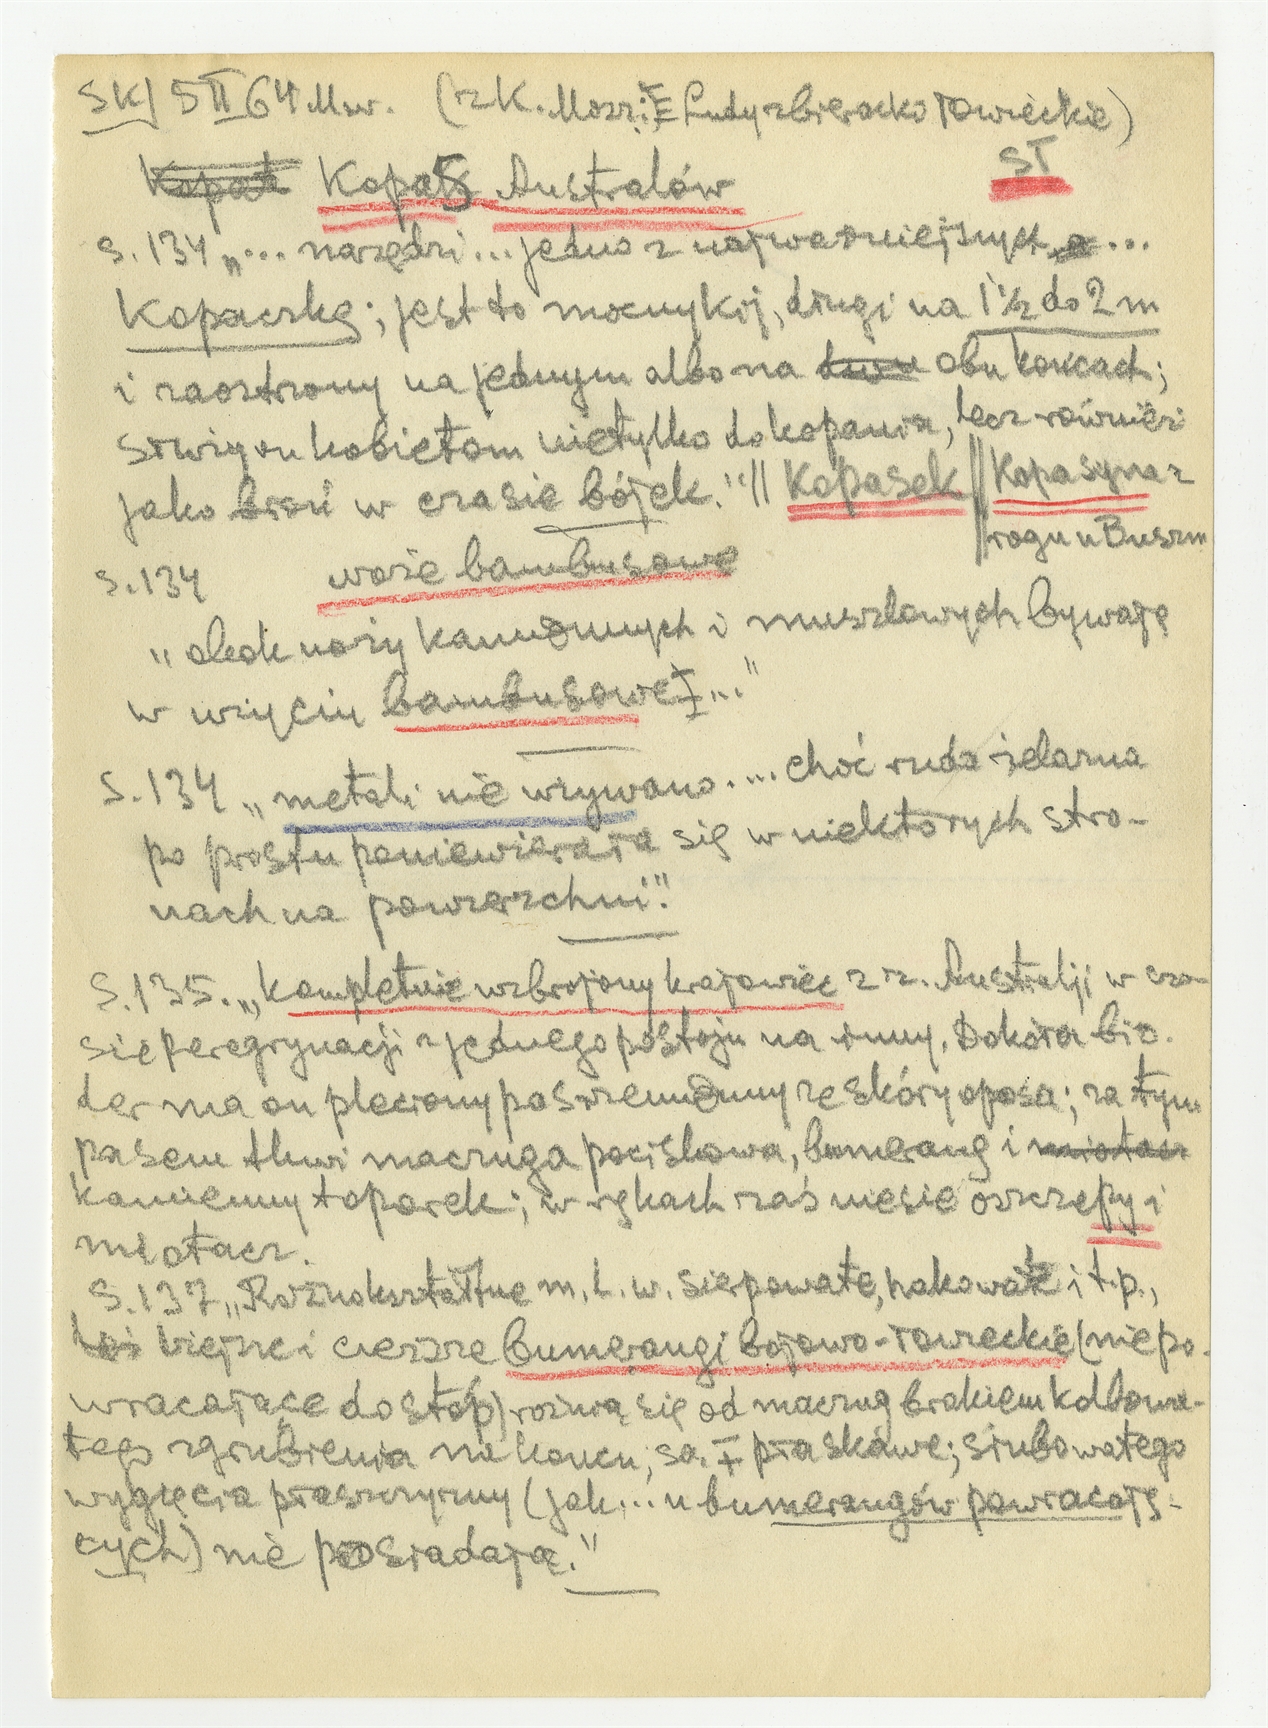 SK/ 5 II 64 Msw. (z K. Mosz: E Ludy zbieracko łowieckie)
ST
Kopaś Australów
s. 134 „... narzędzi... jedno z najważniejszych ...
Kopaczkę; jest to mocny kij, długi na 1 ½ do 2 m
i zaostrzony na jednym albo na obu końcach;
służy on kobietom nietylko do kopania, lecz również
jako broń w czasie bójek." || Kopasek || Kopasyna z
rogu u Buszm
s. 134 noże bambusowe
„obok noży kamiennych i muszlowych bywają
w użyciu bambusowe..."
s. 134 „metali nie używano.... choć ruda żelazna
po prostu poniewierała się w niektórych stro-
nach na powierzchni".
s. 135. „kompletnie uzbrojony krajowiec z z. Australji w cza-
sie peregrynacji z jednego postoju na inny. Dokoła bio-
der ma on pleciony pas rzemienny ze skóry oposa; za tym
pasem tkwi maczuga pociskowa, bumerang i
kamienny toporek; w rękach zaś niesie oszczepy i
miotacz.
S. 137 „Różnokształtne m. i. w. sierpowate, hakowate i t.p.,
bojowo-łowieckie (niepo-
wracające do stóp) różnią się od maczug brakiem kolbowa-
tego zgrubienia na końcu, są ± płaskawe; śrubowatego
wygięcia płaszczyzny (jak... u bumerangów powracają-
cych) nie posiadają."